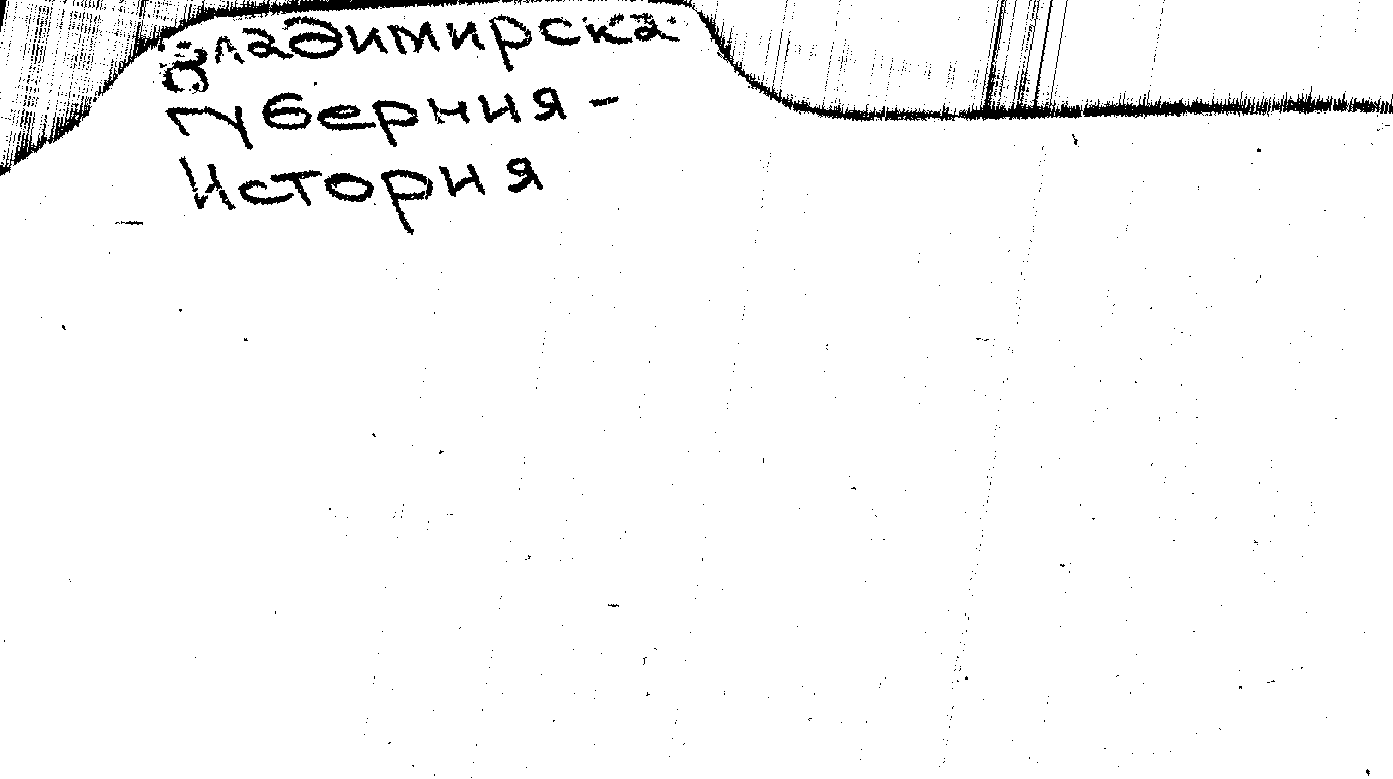 Владимирска
губерния -
История